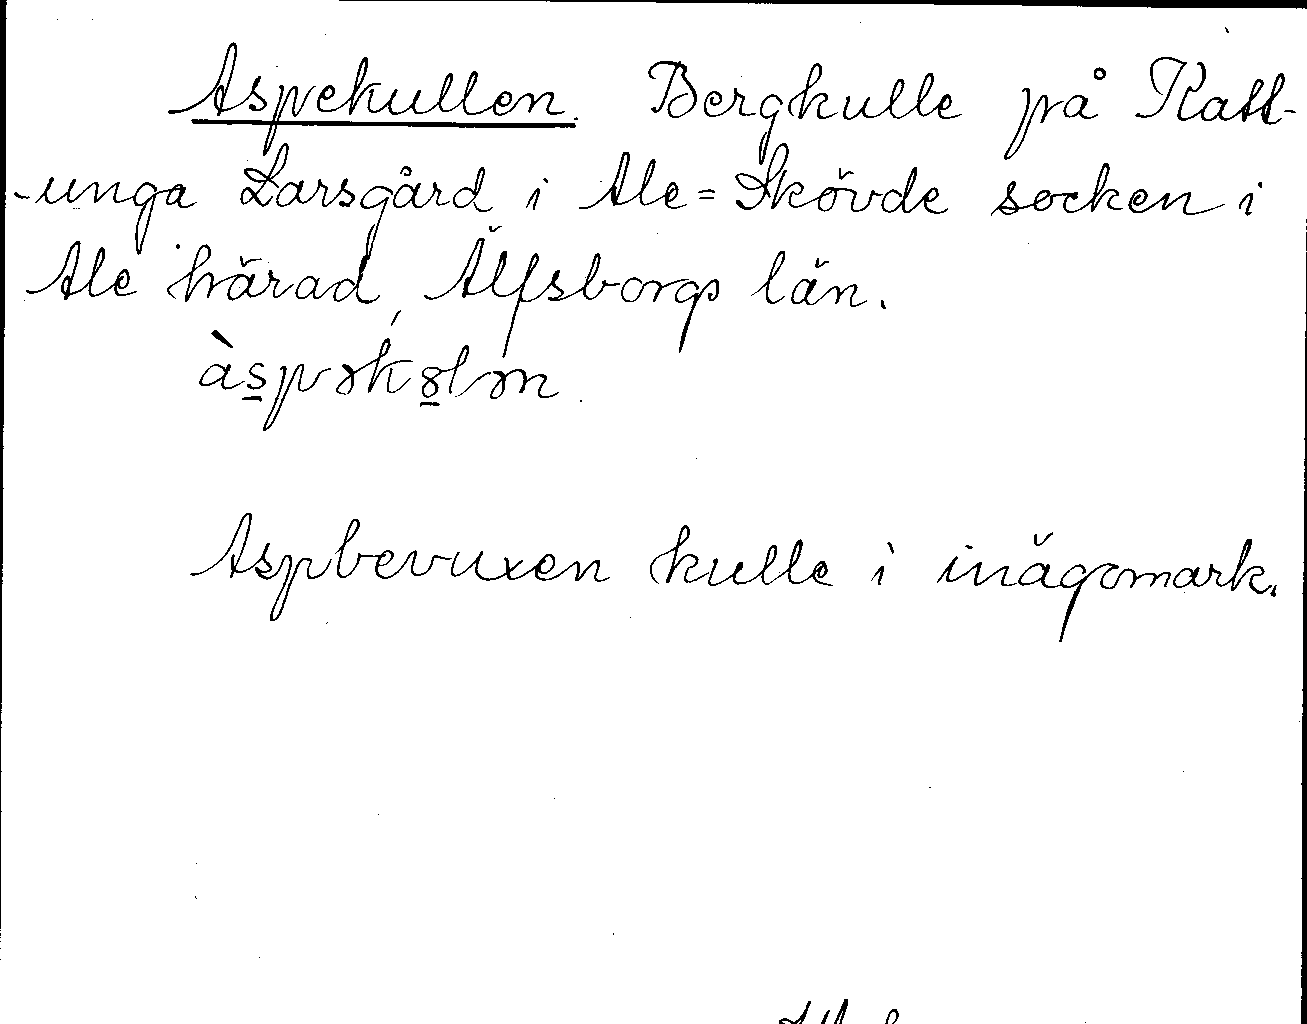 Aspekullen. Bergkulle på Katt-
-unga Larsgård i Ale=Skövde socken i
Ale härad, Älfsborgs län.
àspəkȣlən.
Aspbevuxen kulle i inägomark.